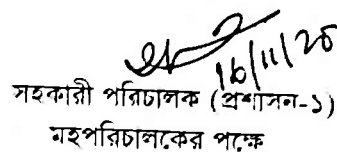 16/11/20
সহকারী পরিচালক (প্রশাসন-১)
মহাপরিচালকের পক্ষে